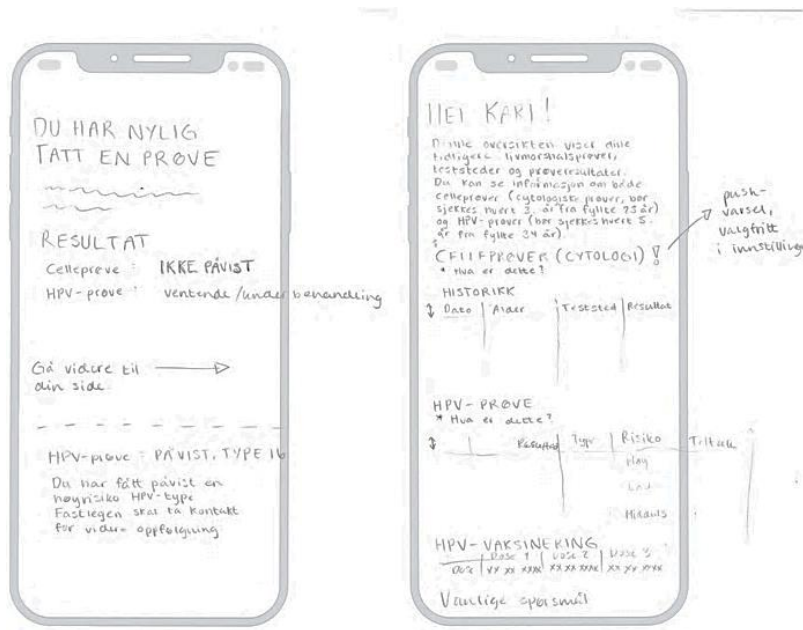 DU HAR NYLIG
TATT EN PRØVE
RESULTAT
Celleprøve : IKKE PÅVIST
HPV-prøve : ventende/under behandling
Gå videre til
din side.
HPV-prøve : PÅVIST, TYPE 16
Du har fått påvist en
høyrisiko HPV-type
Fastlegen skal ta kontakt
for videre oppfølging
HEI KARI!
Denne oversikten viser dine
tidligere livmorhalsprøver,
teststeder og prøveresultater.
Du kan se informasjon om både
celleprøver (cytologisk prøver, bør
sjekkes hvert 3. år fra fylte 25 år)
og HPV-prøver (bør sjekkes hvert 5.
år fra fylte 34 år).
CELLEPRØVER (CYTOLOGI) !
* Hva er dette?
HISTORIKK
Dato Alder Teststed Resultat
push-
varsel,
valgfritt
i innstillinger
HPV-PRØVE
* Hva er dette?
Resultat Type Risiko Tiltak
Høy
Lav
HPV-VAKSINERING
Dose 1 Dose 2 Dose 3
Dato xx xx xxxx xx xx xxxx xx xx xxxx
Vanlige spørsmål